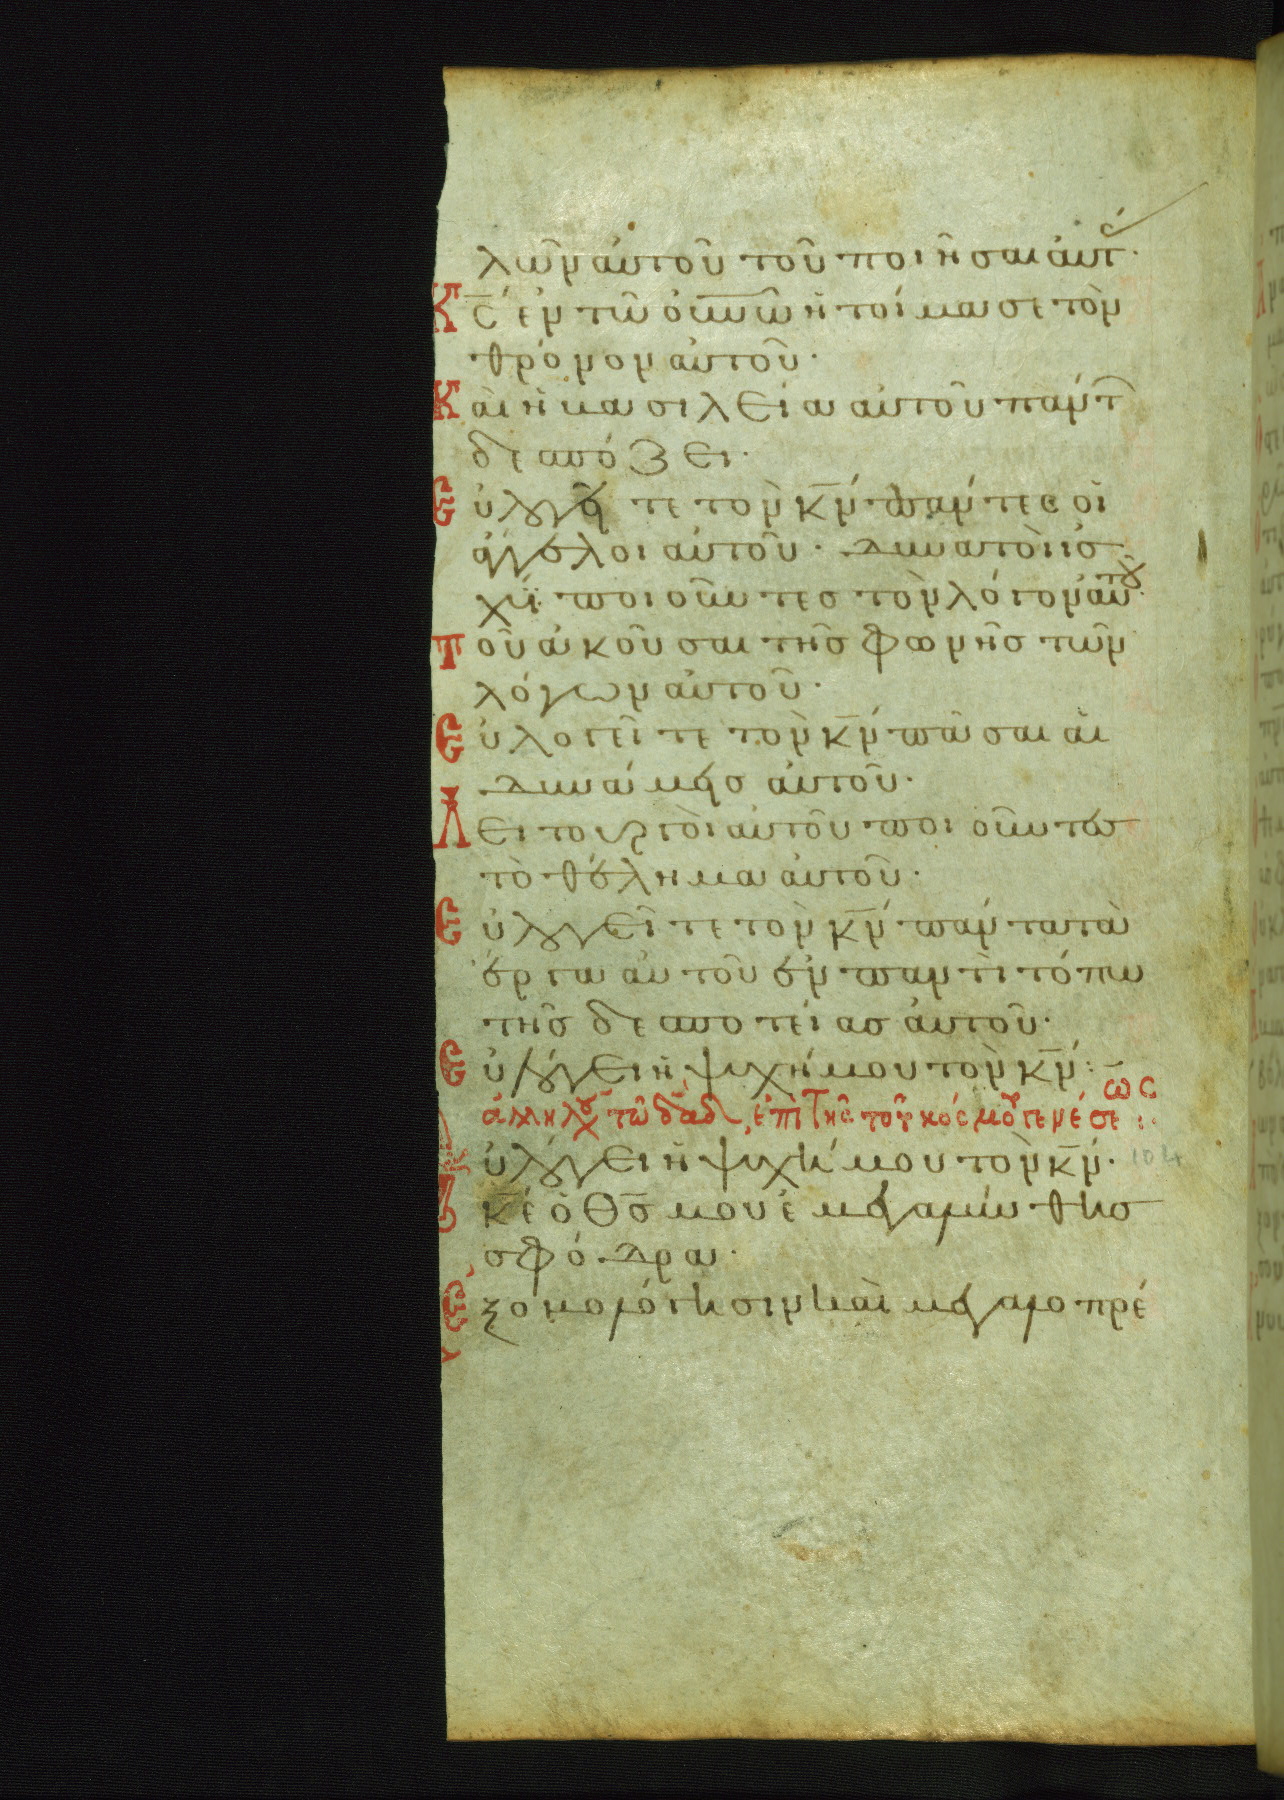 λῶν αὐτοῦ τοῦ ποιῆσαι αὐτ(άς)·
Κ̅ς̅ ἐν τῶ οὐ̅ν̅ῶ ἡτοίμασε τὸν
θρόνον αὐτοῦ·
Καὶ ἡ βασιλεία αὐτοῦ πάντ̅
δεσπόζει·
Εὐλογεῖτε τὸν κ̅ν̅ πάντες οἱ
ἄγγελοι αὐτοῦ· δυνατοὶ ἰσ
χύϊ ποιοῦντες τὸν λόγον αὐτοῦ·
Τοῦ ἀκοῦσαι τῆς φωνῆς τῶν
λόγων αὐτοῦ·
Εὐλογεῖτε τὸν κ̅ν̅ πᾶσαι αἱ
δυνάμεις αὐτοῦ·
Λειτουργοὶ αὐτοῦ ποιοῦντες
τὸ θέλημα αὐτοῦ·
Εὐλογεῖτε τὸν κ̅ν̅ πάντα τὰ
ἔργα αὐτοῦ ἐν παντὶ τόπω
τῆς δεσποτείας αὐτοῦ·
Εὐλόγει ἡ ψυχή μου τὸν κ̅ν̅:
τῶ δα̅δ, ἐπὶ τῆς τοῦ κόσμου γενέσεως:
Εὐλόγει ἡ ψυχή μου τὸν κ̅ν̅· 104
Κ̅ε̅ ὁ Θ̅ς̅ μου ἐμεγαλύνθης
σφόδρα·
Ἐξομολόγησιν καὶ μεγαλοπρέ